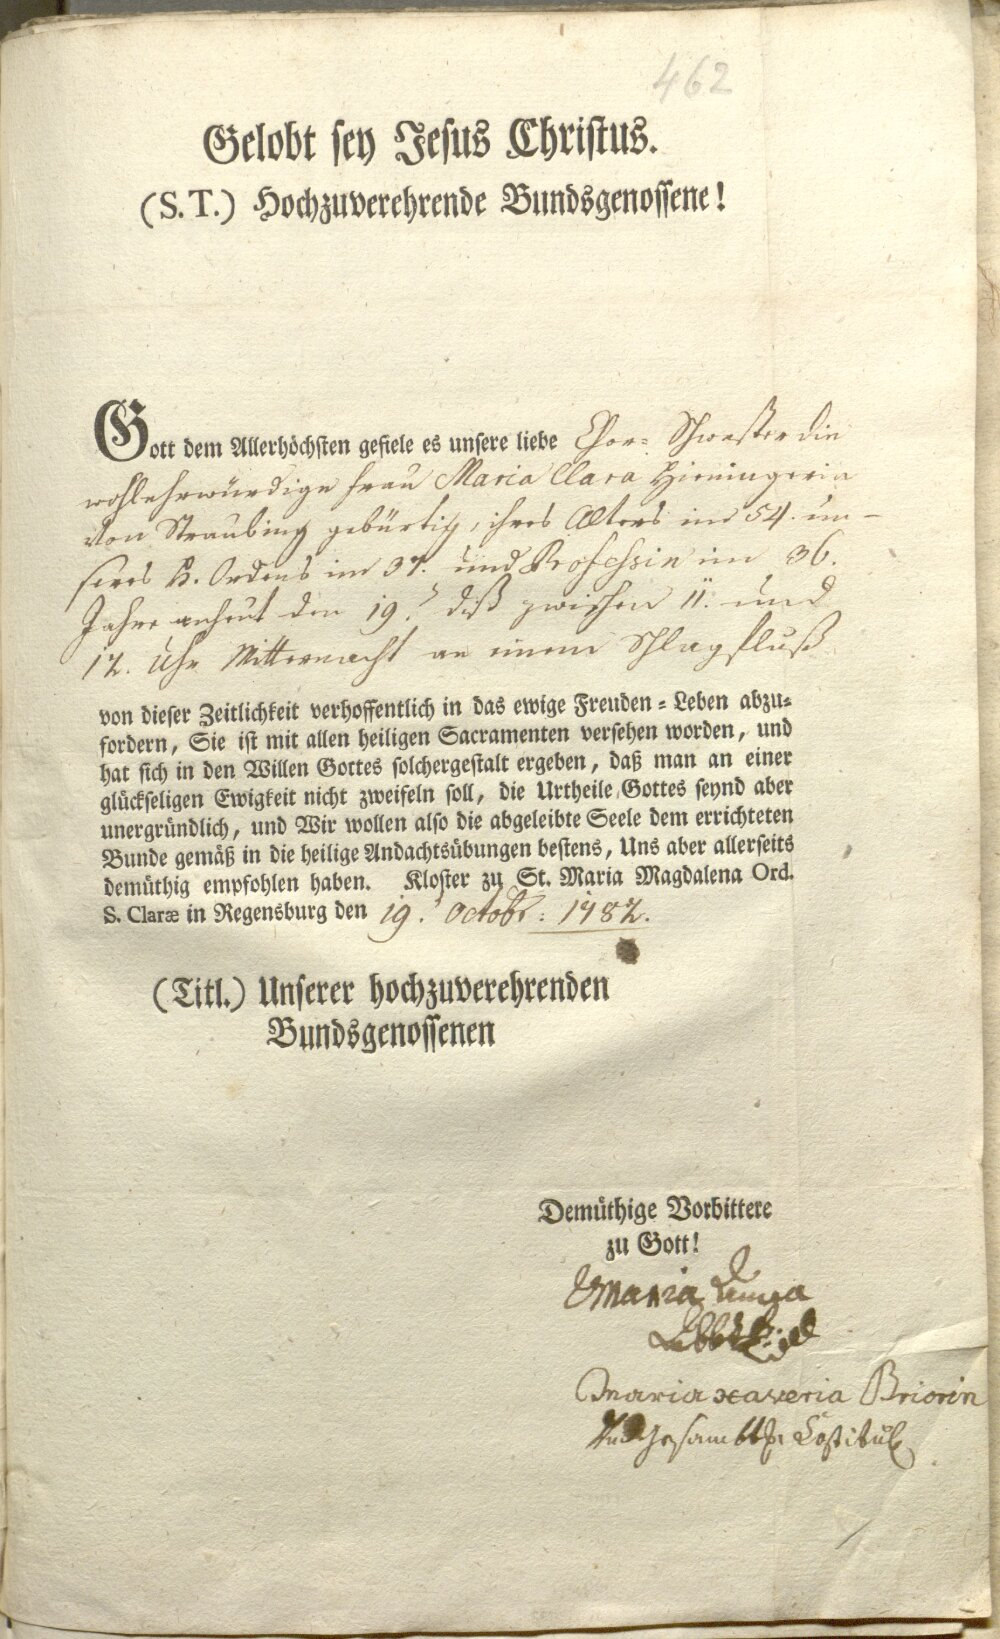 462
Gelobt sey Jesus Christus.
(S. T.) Hochzuverehrende Bundsgenossene!
Gott dem Allerhöchsten gefiele es unsere liebe Chor= Schwester die
wohlehrwürdige Frau Maria Clara Hieningerin
von Straubing gebürtig, ihres Alters im 54. un-
seres H. Ordens im 37. und Profession im 36.
Jahre anheut den 19. diß zwischen 11. und
12. Uhr Mitternacht an einem Schlagfluß
von dieser Zeitlichkeit verhoffentlich in das ewige Freuden=Leben abzu=
fordern, Sie ist mit allen heiligen Sacramenten versehen worden, und
hat sich in den Willen Gottes solchergestalt ergeben, daß man an einer
glückseligen Ewigkeit nicht zweifeln soll, die Urtheile Gottes seynd aber
unergründlich, und Wir wollen also die abgeleibte Seele dem errichteten
Bunde gemäß in die heilige Andachtsübungen bestens, Uns aber allerseits
demüthig empfohlen haben. Kloster zu St. Maria Magdalena Ord.
S. Claræ in Regensburg den 19. Octobr: 1782.
(Titl.) Unserer hochzuverehrenden
Bundsgenossenen
Demüthige Vorbittere
zu Gott!
Maria
Maria xaveria Priorin